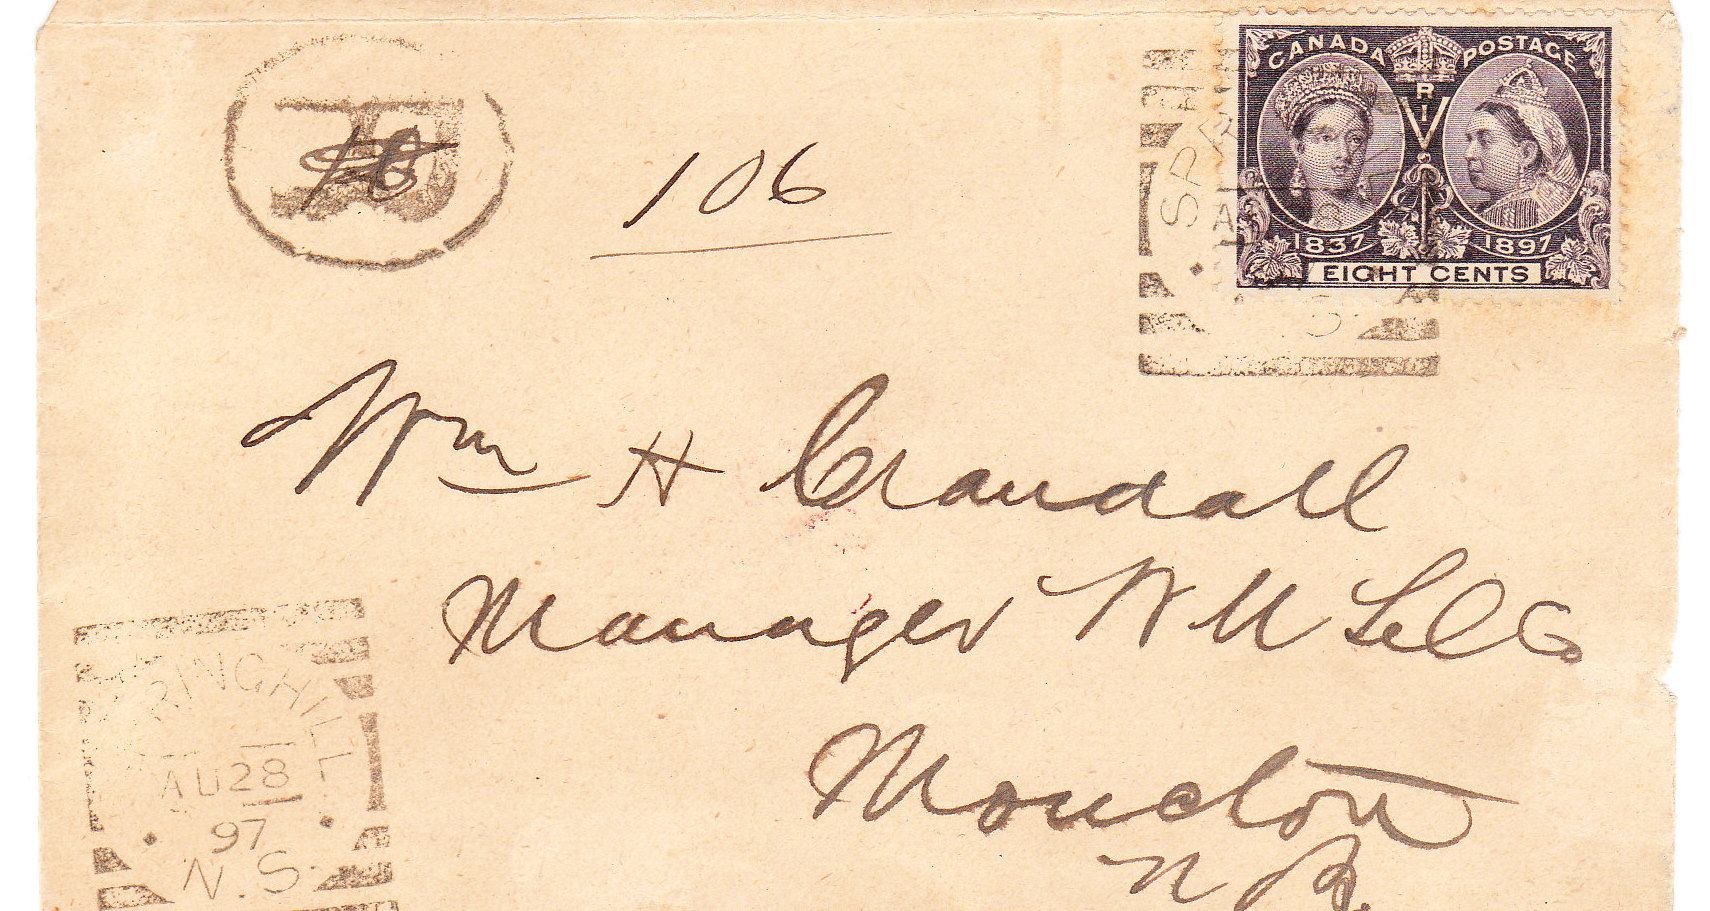 CANADA POSTAGE
V R I
1837 1897
EIGHT CENTS
R
106
Wm H Crandall
Manager
Moncton
N B.
SPRINGHILL
AU 28
97
N.S.